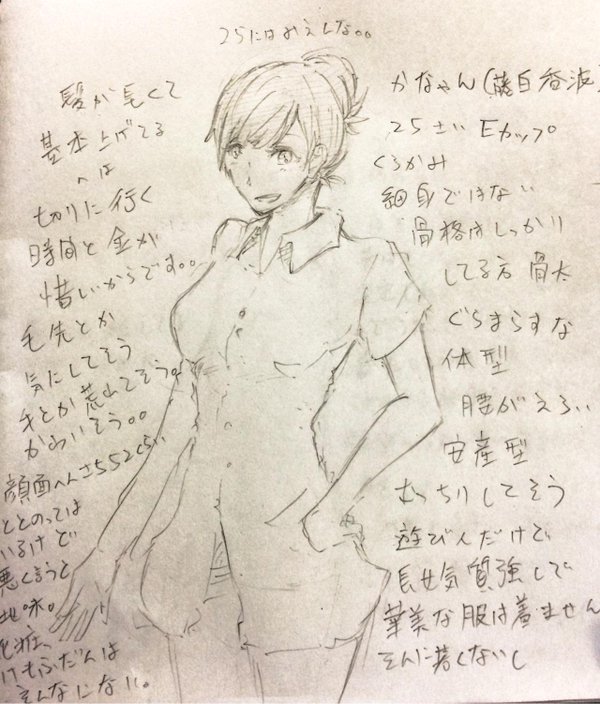 25にはみえんな。。
髪が長くて
基本上げてる
のは
切りに行く
時間と金が
惜しいからです。。
毛先とか
気にしてそう
手とか荒れてそう。
かわいそう。。
顔面へんさち52くらい
ととのっては
いるけど
悪く言うと
地味。
化粧、
けもふだんは
そんなにない。
かなやん(藤白香波)
25さい Eカップ
くろかみ
細身ではない
骨格はしっかり
してる方 骨太
ぐらまらすな
体型
腰がえろい
安産型
むっちりしてそう
遊び人だけど
長女気質強して
華美な服は着ません
そんに若くないし